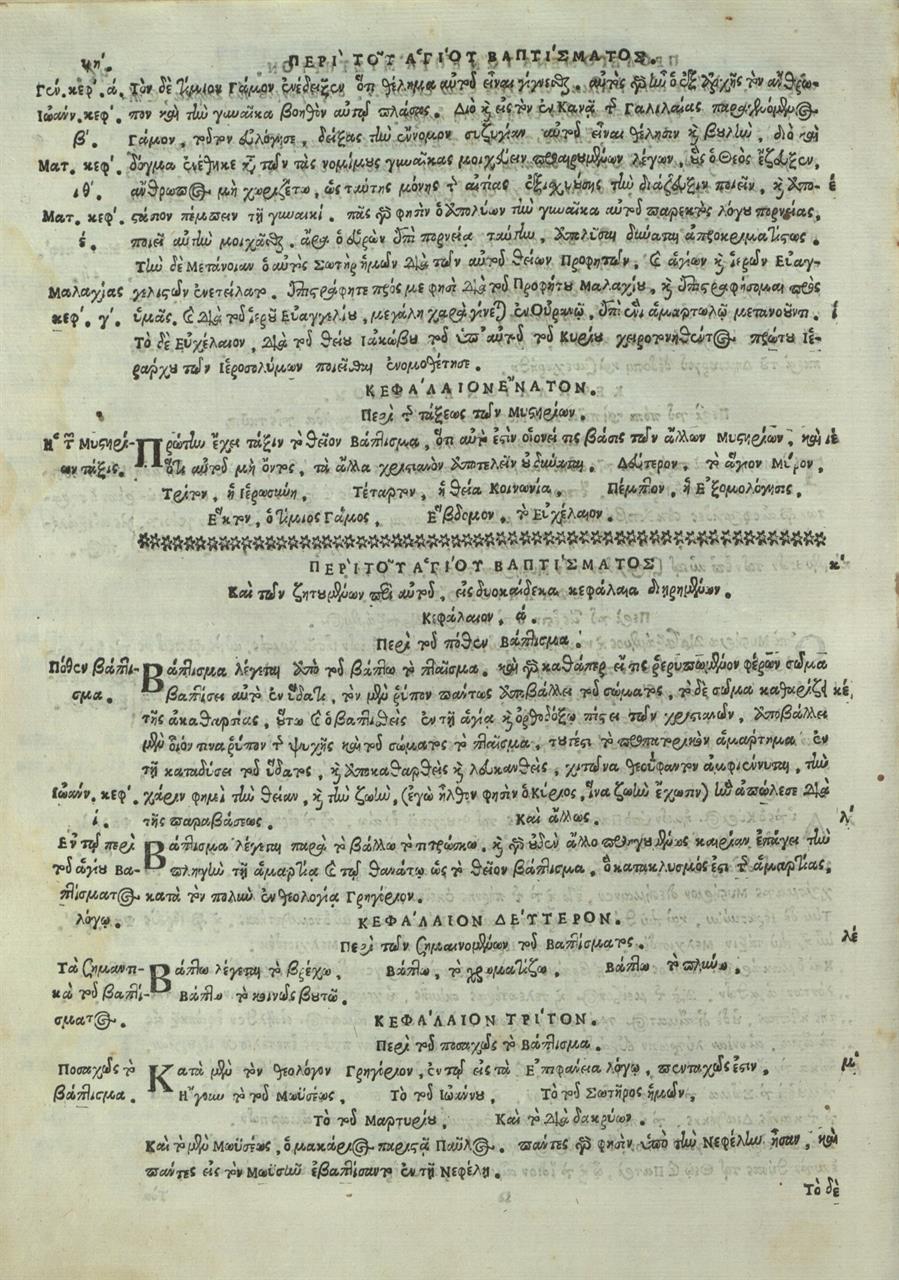 ιη΄. ΠΕΡῚ ΤΟΥ͂ ἉΓΊΟΥ ΒΑΠΤΊΣΜΑΤΟΣ.
Γέν. κεφ. ά. Τὸν δὲ τίμιον Γάμον ἐνέδειξεν ὅτι θέλημα αὐτοῦ εἶναι γίνεσθαι. αὐτὸς γὰρ ἦν ὁ ἐξ ἀρχῆς τὸν ἄνθρω-
Ἰωάνν. κεφ. πον καὶ τὴν γυναῖκα βοηθὸν αὐτῷ πλάσας. Διὸ καὶ εἰς τὸν ἐν Κανᾷ τῆς Γαλιλαίας παραγενόμενος
β΄. Γάμον, τοῦτον εὐλόγησε, δείξας τὴν ἔννομον συζυγίαν αὐτοῦ εἶναι θέλησιν καὶ βουλὴν, διὸ καὶ
Ματ. κεφ. δόγμα ἐξέθηκε κατὰ τῶν τὰς νομίμους γυναῖκας μοιχεύειν προαιρουμένων λέγων, οὓς ὁ Θεὸς ἔζευξεν,
ιθ΄. ἄνθρωπος μὴ χωριζέτω, ὡς ταύτης μόνης τῆς αἰτίας ἐξισχυούσης τὴν διάζευξιν ποιεῖν, καὶ ἀπο- έ
Ματ. κεφ. στάσιον πέμπειν τῇ γυναικί. πᾶς γὰρ φησὶν ὁ ἀπολύων τὴν γυναῖκα αὐτοῦ παρεκτὸς λόγου πορνείας,
έ. ποιεῖ αὐτὴν μοιχᾶσθαι. ἄρα ὁ εὑρὼν ἐπὶ πορνείᾳ ταύτην, ἀπολῦσαι δύναται ἀπροκριματίστως.
Τὴν δὲ Μετάνοιαν ὁ αὐτὸς Σωτὴρ ἡμῶν διὰ τῶν αὐτοῦ θείων Προφητῶν, καὶ ἁγίων καὶ ἱερῶν Εὐαγ-
Μαλαχίας γελιστῶν ἐνετείλατο. ἐπιστράφητε πρός με φησὶ διὰ τοῦ Προφήτου Μαλαχίου, καὶ ἐπιστραφήσομαι πρὸς
κεφ. γ΄. ὑμᾶς. καὶ διὰ τοῦ ἱεροῦ Εὐαγγελίου, μεγάλη χαρὰ γίνεται ἐν Οὐρανῷ, ἐπὶ ἑνὶ ἁμαρτωλῷ μετανοοῦντι. ί
Τὸ δὲ Εὐχέλαιον, διὰ τοῦ θείου Ἰακώβου τοῦ ὑπ' αὐτοῦ τοῦ Κυρίου χειροτονηθέντος πρώτου Ἱε-
ράρχου τῶν Ἱεροσολύμων ποιεῖσθαι ἐνομοθέτησε.
ΚΕΦΆΛΑΙΟΝ ἝΝΑΤΟΝ.
Περὶ τῆς τάξεως τῶν Μυστηρίων.
Ἡ τῶν Μυστηρί- Πρώτην ἔχει τάξιν τὸ θεῖον Βάπτισμα, ὅτι αὐτὸ ἐστὶν οἱονεί τις βάσις τῶν ἄλλων Μυστηρίων, καὶ ιέ
ων τάξις. ὅτι αὐτοῦ μὴ ὄντος, τὰ ἄλλα χριστιανὸν ἀποτελεῖν οὐ δύναται. Δεύτερον, τὸ ἅγιον Μύρον,
Τρίτον, ἡ Ἱερωσύνη, Τέταρτον, ἡ θεία Κοινωνία, Πέμπτον, ἡ Ἐξομολόγησις,
Ἕκτον, ὁ τίμιος Γάμος, Ἕβδομον, τὸ Εὐχέλαιον.
ΠΕΡῚ ΤΟΥ͂ ἉΓΊΟΥ ΒΑΠΤΊΣΜΑΤΟΣ κ΄
Καὶ τῶν ζητουμένων περὶ αὐτοῦ, εἰς δυοκαίδεκα κεφάλαια διῃρημένων.
Κεφάλαιον, ά.
Περὶ τοῦ πόθεν Βάπτισμα.
Πόθεν βάπτι- Βάπτισμα λέγεται ἀπὸ τοῦ βάπτω τὸ πταῖσμα. καὶ γὰρ καθάπερ εἴ τις ῥερυπωμένον φέρων σῶμα
σμα. βαπτίσει αὐτὸ ἐν ὕδατι, τὸν μὲν ῥύπον πάντως ἀποβάλλει τοῦ σώματος, τὸ δὲ σῶμα καθαρίζει κέ,
τῆς ἀκαθαρσίας, οὕτω καὶ ὁ βαπτισθεὶς ἐν τῇ ἁγίᾳ καὶ ὀρθοδόξῳ πίστει τῶν χριστιανῶν, ἀποβάλλει
μὲν οἷόν τινα ῥύπον τῆς ψυχῆς καὶ τοῦ σώματος τὸ πταῖσμα, τουτέστι τὸ προπατορικὸν ἁμάρτημα ἐν
τῇ καταδύσει τοῦ ὕδατος, καὶ ἀποκαθαρθεὶς καὶ λευκανθεὶς, χιτῶνα θεοΰφαντον ἀμφιέννυται, τὴν
Ἰωάνν. κεφ. χάριν φημὶ τὴν θείαν, καὶ τὴν ζωὴν, (ἐγὼ ἦλθον φησὶν ὁ Κύριος, ἵνα ζωὴν ἔχωσιν) ἣν ἀπώλεσε διὰ
ί. τῆς παραβάσεως. Καὶ ἄλλως. λ΄
Ἐν τῷ περὶ Βάπτισμα λέγεται παρὰ τὸ βάλλω τὸ τιτρώσκω. καὶ γὰρ οὐδὲν ἄλλο προηγουμένως καιρίαν ἐπάγει τὴν
τοῦ ἁγίου Βα- πληγὴν τῇ ἁμαρτίᾳ καὶ τῷ θανάτῳ ὡς τὸ θεῖον βάπτισμα, ὁ κατακλυσμός ἐστι τῆς ἁμαρτίας,
πτίσματος κατὰ τὸν πολὺν ἐν θεολογίᾳ Γρηγόριον.
λόγῳ. ΚΕΦΆΛΑΙΟΝ ΔΕΎΤΕΡΟΝ.
Περὶ τῶν σημαινομένων τοῦ Βαπτίσματος. λέ
Τὰ σημαντι- Βάπτω λέγεται τὸ βρέχω, Βάπτω, τὸ χρωματίζω. Βάπτω τὸ πλύνω.
κὰ τοῦ βαπτί- Βάπτω τὸ κοινῶς βουτῶ.
σματος. ΚΕΦΆΛΑΙΟΝ ΤΡΊΤΟΝ.
Περὶ τοῦ ποσαχῶς τὸ Βάπτισμα.
Ποσαχῶς τὸ Κατὰ μὲν τὸν θεολόγον Γρηγόριον, ἐν τῷ εἰς τὰ Ἐπιφάνεια λόγῳ, πενταχῶς ἐστιν, μ΄
βάπτισμα. Ἤγουν τὸ τοῦ Μωϋσέως, Τὸ τοῦ Ἰωάννου, Τὸ τοῦ Σωτῆρος ἡμῶν,
Τὸ τοῦ Μαρτυρίου, Καὶ τὸ διὰ δακρύων.
Καὶ τὸ μὲν Μωϋσέως, ὁ μακάριος παριστᾷ Παῦλος. πάντες γὰρ φησὶν ὑπὸ τὴν Νεφέλην ἦσαν, καὶ
πάντες εἰς τὸν Μωϋσῆν ἐβαπτίσαντο ἐν τῇ Νεφέλῃ.
Τὸ δὲ